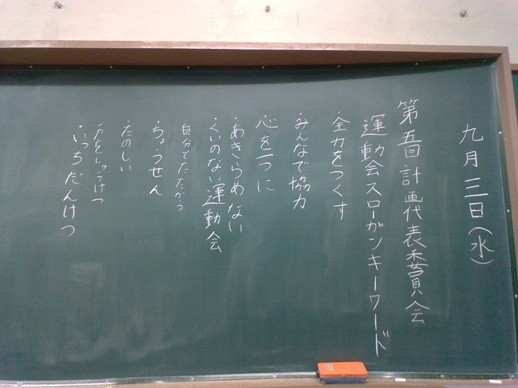 九月三日(水)
第五回計画代表委員会
運動会スローガンキーワード
・全力をつくす
・みんなで協力
・心を一つに
・あきらめない
・くいのない運動会
・自分とたたかう
・ちょうせん
・たのしい
・力をしゅうけつ
・いっちだんけつ